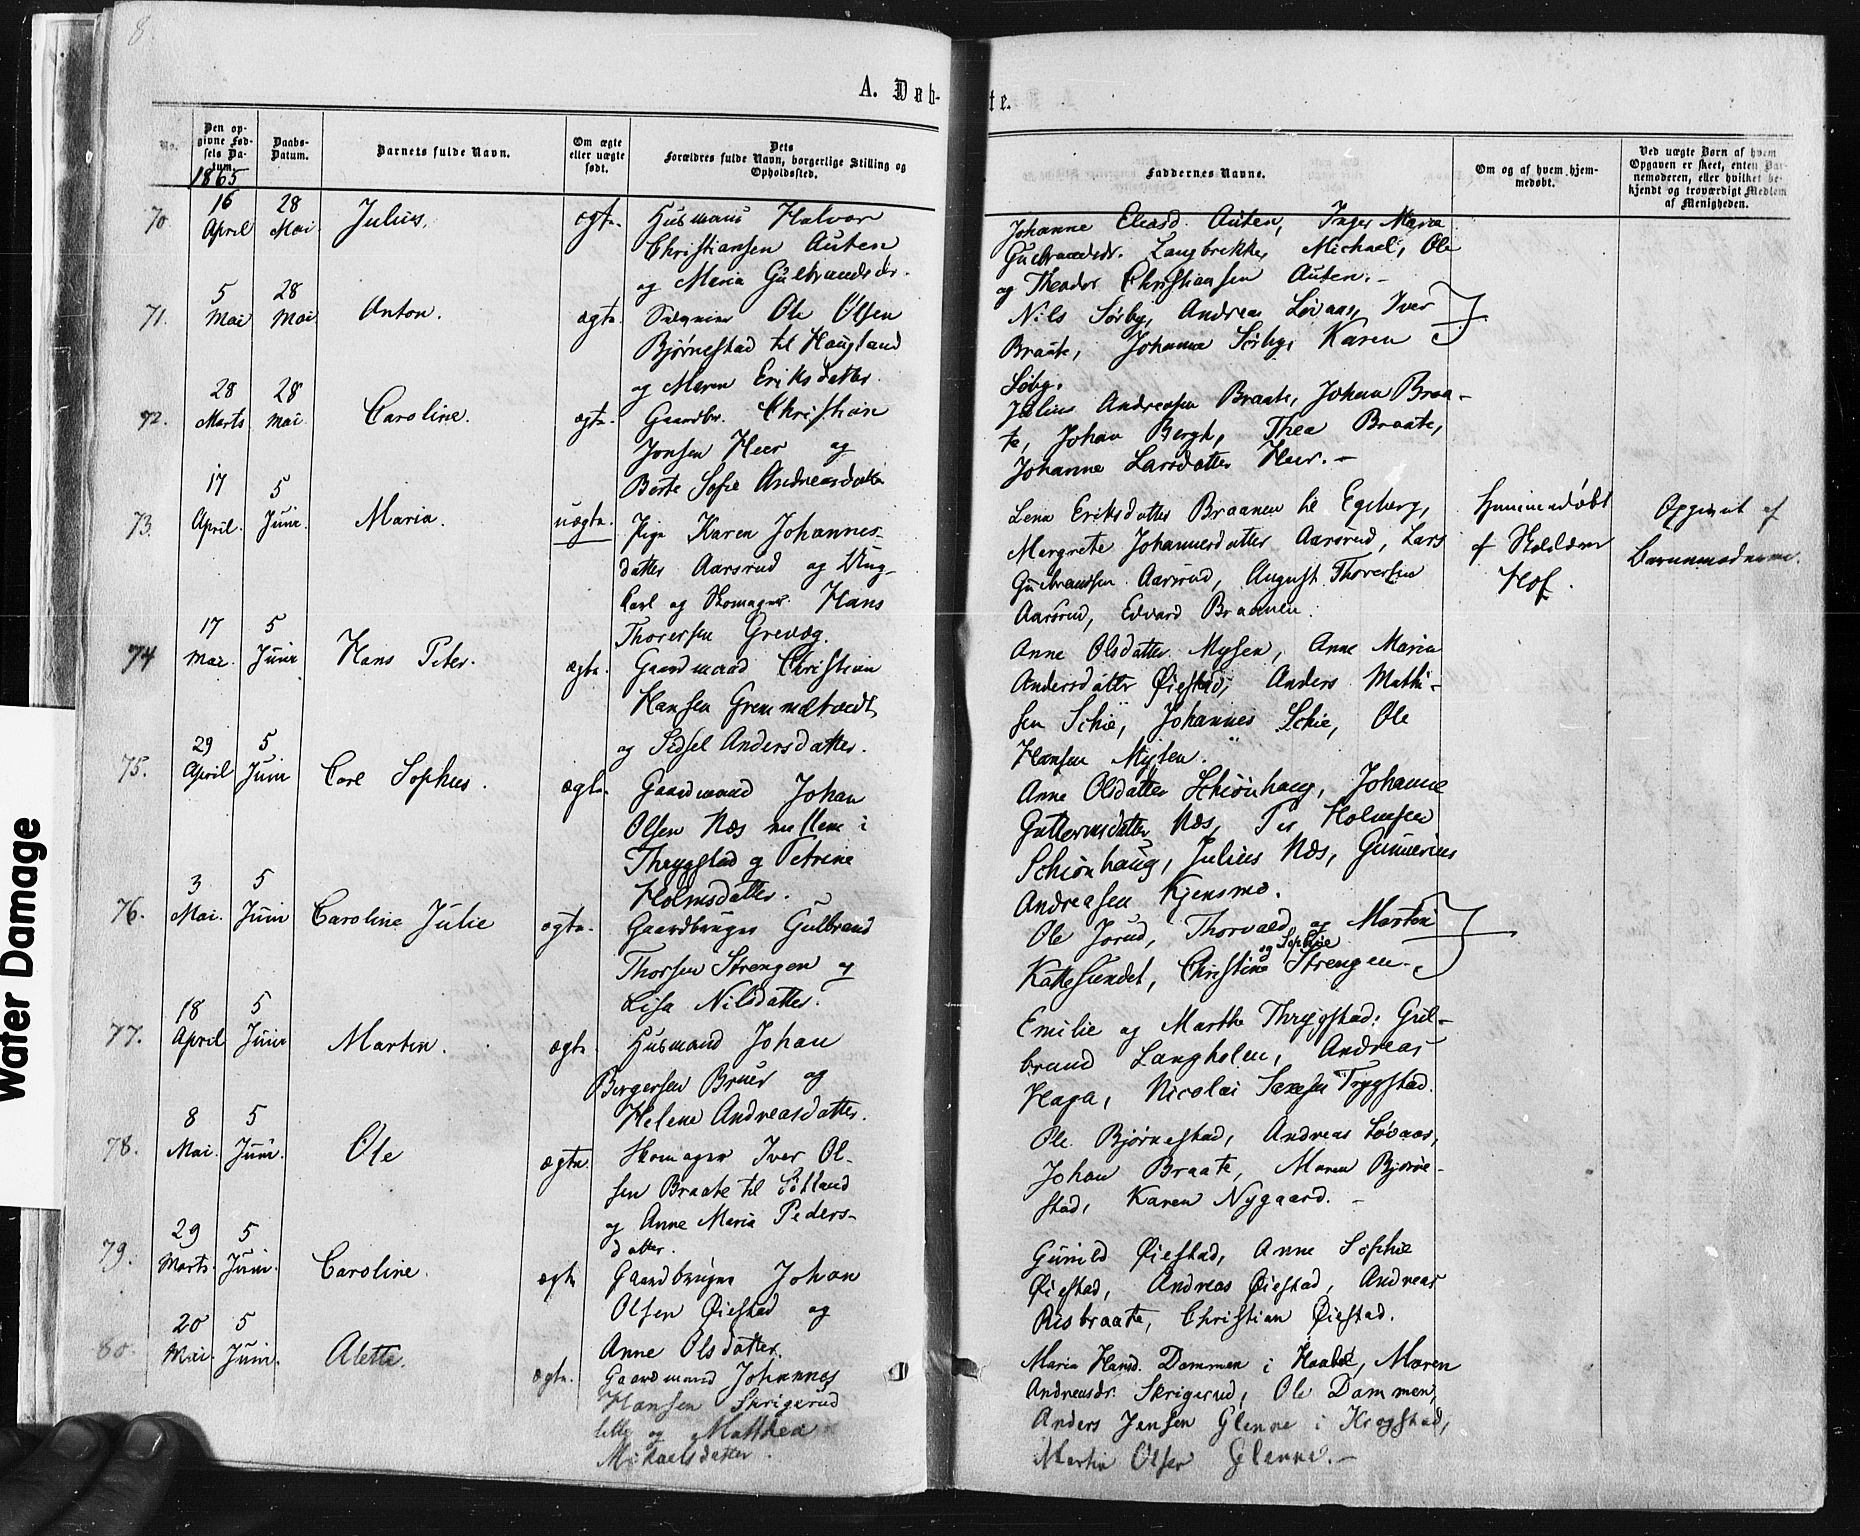 8.
A. Døb-
te.
No.
Den op-
givne Fød-
sels Da-
tum.
1865
Daabs-
Datum.
Barnets fulde Navn.
Om ægte
eller uægte
født.
Dets
Forældres fulde Navn, borgerlige Stilling og
Opholdssted.
Faddernes Navne.
Om og af hvem hjem-
medøbt.
Ved uægte Børn af hvem
Opgaven er skeet, enten Bar-
nemoderen, eller hvilket be-
kjendt og troværdigt Medlem
af Menigheden.
70.
16
April
28
Mai
Julius.
ægte.
Husmand Halvor
Christiansen Auten
og Maria Gulbrandsdr.
Johanne Eliasd. Auten, Inger Maria
Gulbrandsdr. Langbrekke, Michael, Ole
og Theodor Christiansen Auten.-
71.
5
Mai
28
Mai
Anton.
ægte.
Ole Olsen
Bjørnestad til Haugland
og Maren Eriksdatter.
Nils Sørby, Andreas Løvaas, Iver
Braate, Johanne Sørby, Karen
Søby.
72.
28
Marts
28
Mai
Caroline.
ægte.
Gaardbr. Christian
Jonsen Heer og
Berte Sofie Andreasdatter
Julius Andreasen Braate, Johan Braa-
te, Johan Bergh, Thea Braate,
Johanne Larsdatter Heer.-
73.
17
April.
5
Juni.
Maria.
uægte.
Pige Karen Johannes-
datter Aarsrud og Ung-
karl og Skomager Hans
Thoresen Grevæg.
Lena Eriksdatter Braanen til Egeberg,
Margrete Johannesdatter Aarsrud, Lars
Gulbrandsen Aarsrud, August Thoresen
Aarsrud, Edvard Braanen.
hjemmedøbt
af
Hof.
Opgivet af
Barnemoderen.
74
17
Mai.
5
Juni
Hans Peter.
ægte.
Gaardmand Christian
Hansen Gremmætvedt
og Sidsel Andersdatter.
Anne Olsdatter Mysen, Anne Maria
Andersdatter Øiestad, Anders Mathi-
sen Schie, Johannes Schie, Ole
Hansen Mysen.
75.
29
April
5
Juni
Carl Sophus.
ægte.
Gaardmand Johan
Olsen Næs mellem i
Thrygstad og Petrine
Holmsdatter.
Anne Olsdatter Schiönhaug, Johanne
Guttormsdatter Næs, Per Holmsen
Schiönhaug, Julius Næs, Gunnerius
Andreasen Kjensmo.
76.
3
Mai.
5
Juni
Caroline Julie
ægte.
Gaardbruger Gulbrand
Thorsen Strengen og
Lisa Nilsdatter.
Ole Jorud, Thorvald og Morten
og Sophie
Kattesundet, Christine Strengen.
77.
18
April
5
Juni
Martin.
ægte.
Husmand Johan
Borgersen Bruer og
Helene Andreasdatter.
Emilie og Marthe Thrygstad, Gul-
brand Langholen, Andreas
Haga, Nicolai Saxesen Trygstad.
78.
8
Mai.
5
Juni.
Ole
ægte.
Skomager Iver Ol-
sen Braate til Sötland
og Anne Maria Peders-
datter.
Ole Bjørnestad, Andreas Løvaas,
Johan Braate, Maren Bjørne-
stad, Karen Nygaard.-
79.
29
Marts.
5
Juni.
Caroline.
ægte
Gaardbruger Johan
Olsen Øiestad og
Anne Olsdatter.
Gunild Øiestad, Anne Sophie
Øiestad, Andreas Øiestad, Andreas
Risbraate, Christian Øiestad.
80.
20
Mai.
5
Juni.
Alette.
ægte.
Gaardmand Johannes
Hansen Skrigerud
lille og Mathea
Mikaelsdatter.
Maria Hansd. Dammen i Haabøl, Maren
Andreasdr. Skrigerud, Ole Dammen,
Anders Jensen Glenne i Krogstad,
Martin Olsen Glenne.-
Water Damage